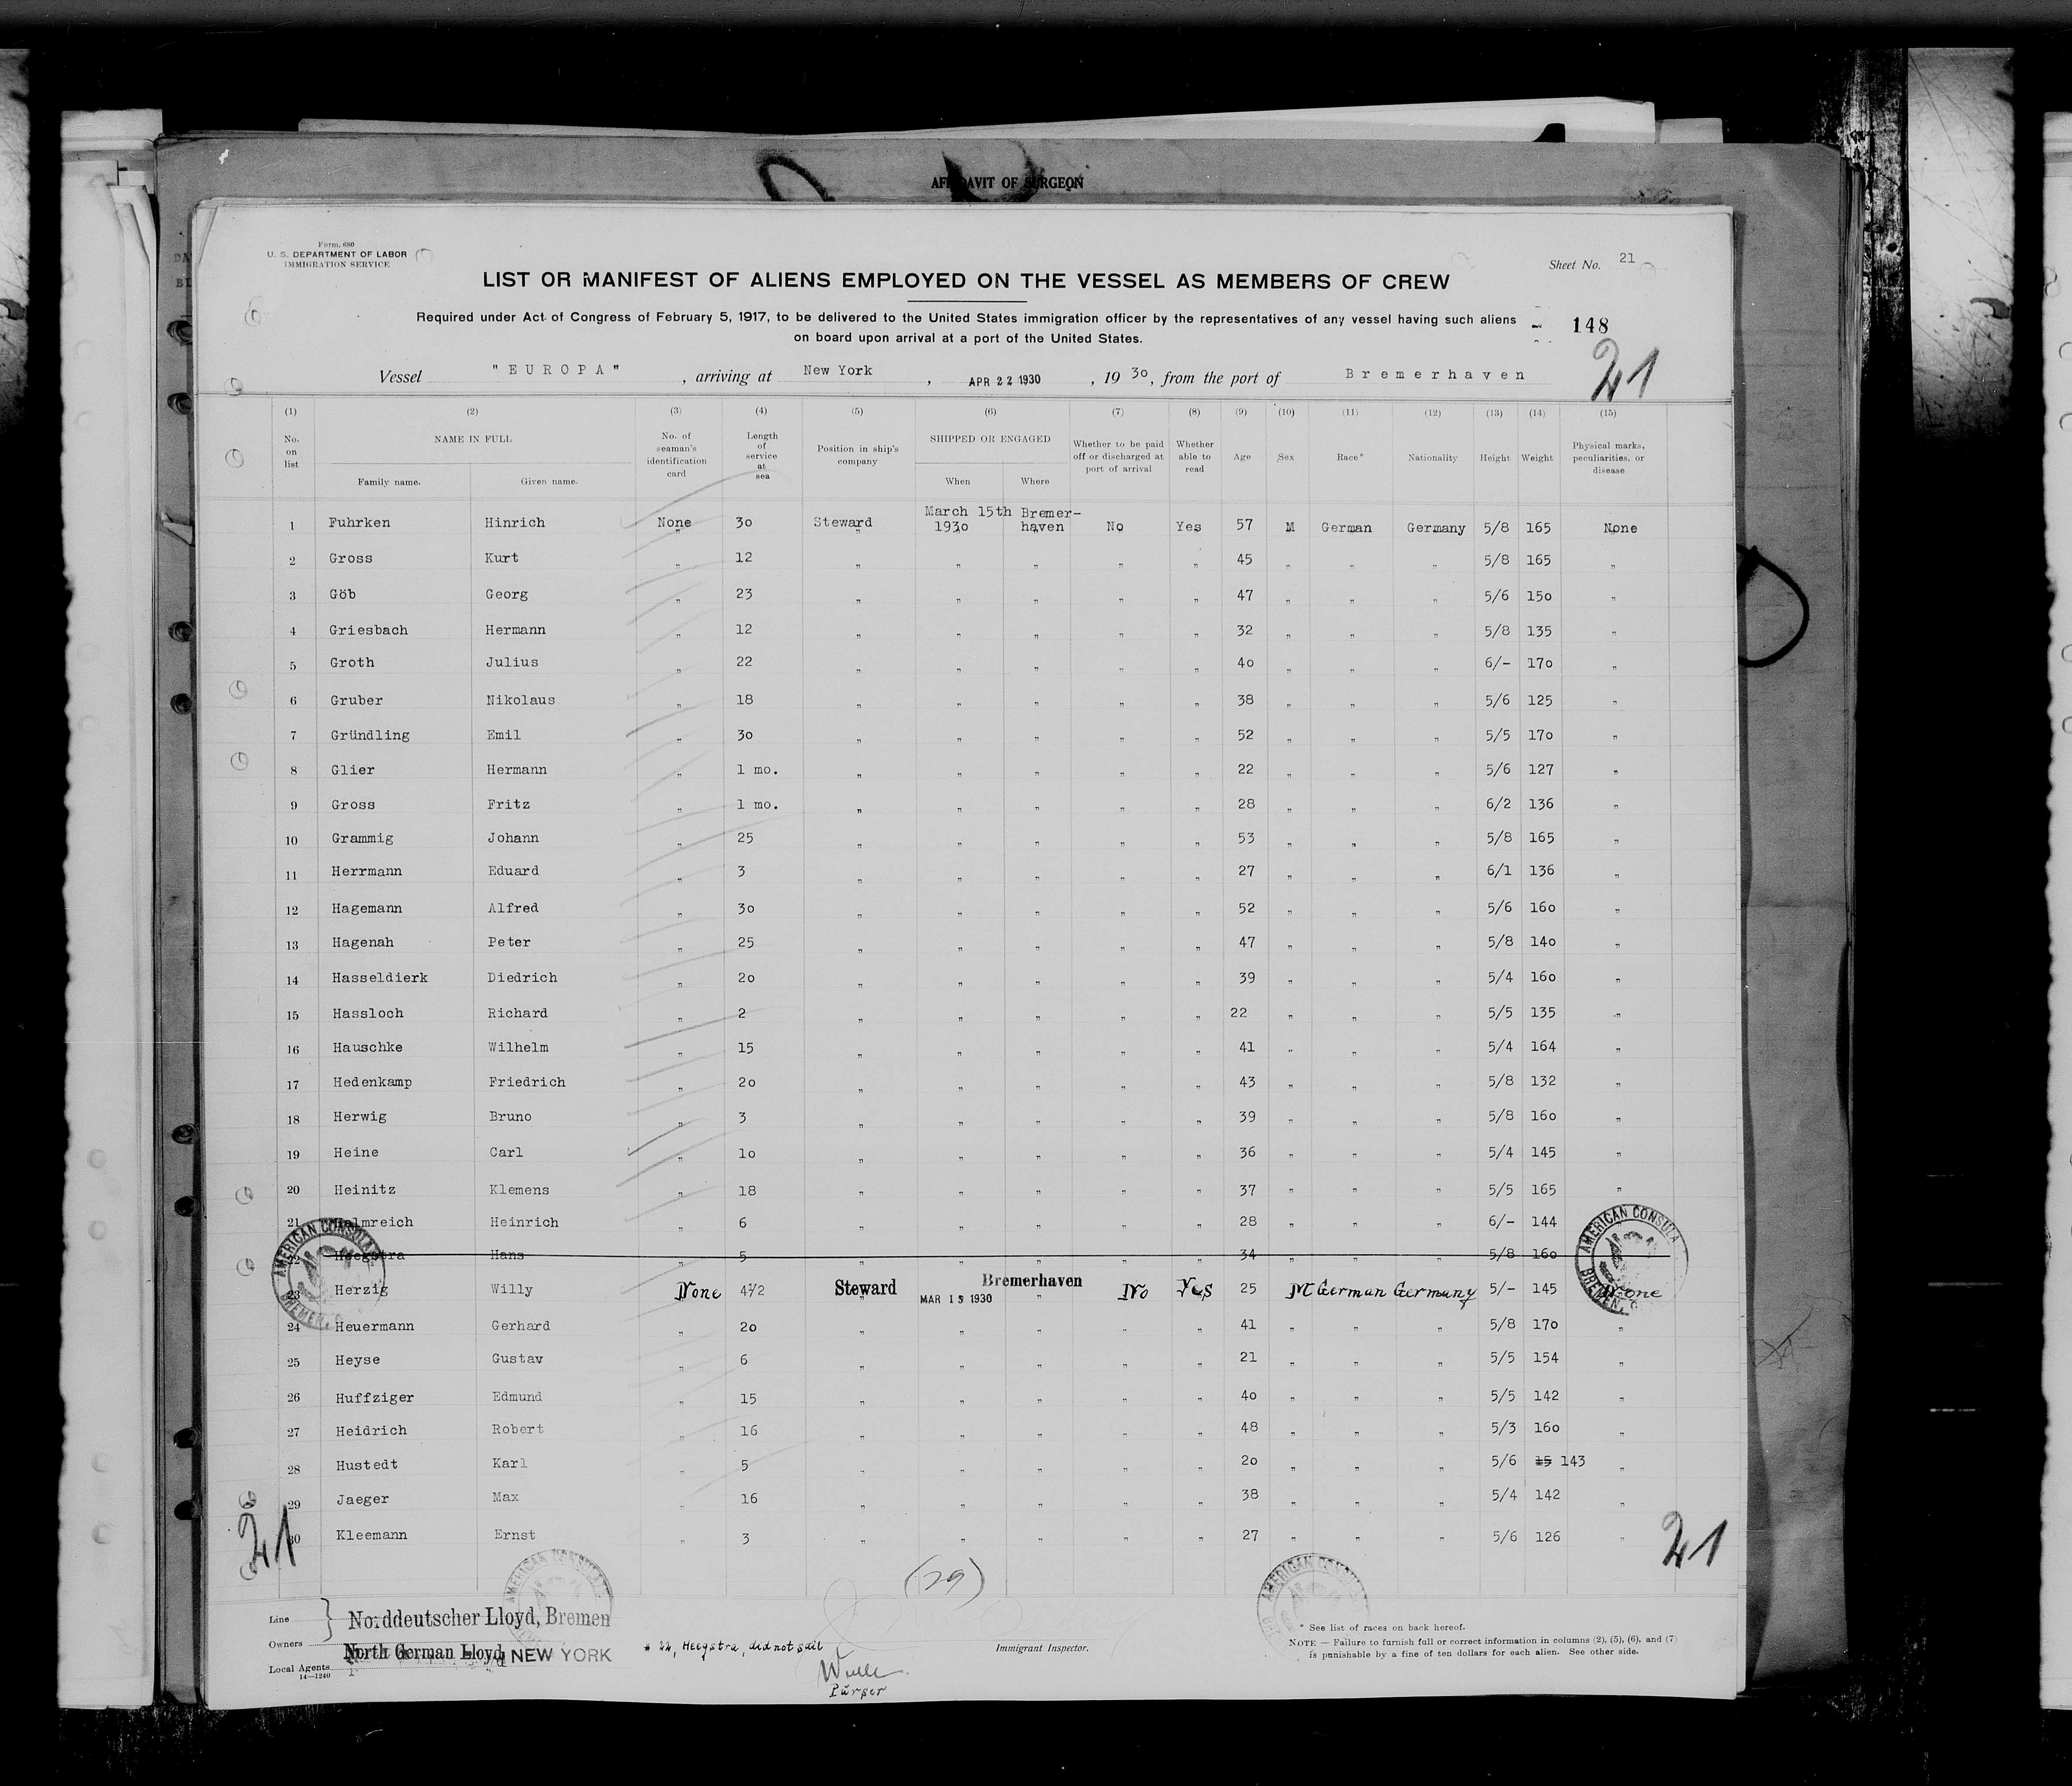 AFFIDAVIT OF SURGEON
Form 680
U. S. DEPARTMENT OF LABOR
IMMIGRATION SERVICE
Sheet No. 21
LIST OR MANIFEST OF ALIENS EMPLOYED ON THE VESSEL AS MEMBERS OF CREW
Required under Act of Congress of February 5, 1917, to be delivered to the United States immigration officer by the representatives of any vessel having such aliens
on board upon arrival at a port of the United States.
148
21
Vessel "EUROPA", arriving at New York, APR 22 1930, 19 30, from the port of Bremerhaven
(1) (2) (3) (4) (5) (6) (7) (8) (9) (10) (11) (12) (13) (14) (15)
No. on list NAME IN FULL No. of seaman's identification card Length of service at sea Position in ship's company SHIPPED OR ENGAGED Whether to be paid off or discharged at port of arrival Whether able to read Age Sex Race* Nationality Height Weight Physical marks, peculiarities, or disease
Family name. Given name. When Where
1 Fuhrken Hinrich None 30 Steward March 15th 1930 Bremer-haven No Yes 57 M German Germany 5/8 165 None
2 Gross Kurt " 12 " " " " " 45 " " " 5/8 165 "
3 Göb Georg " 23 " " " " " 47 " " " 5/6 150 "
4 Griesbach Hermann " 12 " " " " " 32 " " " 5/8 135 "
5 Groth Julius " 22 " " " " " 40 " " " 6/- 170 "
6 Gruber Nikolaus " 18 " " " " " 38 " " " 5/6 125 "
7 Gründling Emil " 30 " " " " " 52 " " " 5/5 170 "
8 Glier Hermann " 1 mo. " " " " " 22 " " " 5/6 127 "
9 Gross Fritz " 1 mo. " " " " " 28 " " " 6/2 136 "
10 Grammig Johann " 25 " " " " " 53 " " " 5/8 165 "
11 Herrmann Eduard " 3 " " " " " 27 " " " 6/1 136 "
12 Hagemann Alfred " 30 " " " " " 52 " " " 5/6 160 "
13 Hagenah Peter " 25 " " " " " 47 " " " 5/8 140 "
14 Hasseldierk Diedrich " 20 " " " " " 39 " " " 5/4 160 "
15 Hassloch Richard " 2 " " " " " 22 " " " 5/5 135 "
16 Hauschke Wilhelm " 15 " " " " " 41 " " " 5/4 164 "
17 Hedenkamp Friedrich " 20 " " " " " 43 " " " 5/8 132 "
18 Herwig Bruno " 3 " " " " " 39 " " " 5/8 160 "
19 Heine Carl " 10 " " " " " 36 " " " 5/4 145 "
20 Heinitz Klemens " 18 " " " " " 37 " " " 5/5 165 "
21 Helmreich Heinrich " 6 " " " " " 28 " " " 6/- 144
22 Heegstra Hans " 5 " " " " " 34 " " " 5/8 160
23 Herzig Willy None 4 1/2 Steward MAR 15 1930 Bremerhaven No Yes 25 M German Germany 5/- 145 None
24 Heuermann Gerhard " 20 " " " " " 41 " " " 5/8 170 "
25 Heyse Gustav " 6 " " " " " 21 " " " 5/5 154 "
26 Huffziger Edmund " 15 " " " " " 40 " " " 5/5 142 "
27 Heidrich Robert " 16 " " " " " 48 " " " 5/3 160 "
28 Hustedt Karl " 5 " " " " " 20 " " " 5/6 15 143 "
29 Jaeger Max " 16 " " " " " 38 " " " 5/4 142 "
30 Kleemann Ernst " 3 " " " " " 27 " " " 5/6 126 "
AMERICAN CONSULATE BREMEN, G
AMERICAN CONSULA BREMEN, G
21
21
(29)
AMERICAN CONSULATE
AMERICAN CONSULATE
Line Norddeutscher Lloyd, Bremen
Owners
Local Agents North German Lloyd, NEW YORK
14—1240
* 22, Heegstra, did not sail
Purser
Immigrant Inspector.
* See list of races on back hereof.
NOTE — Failure to furnish full or correct information in columns (2), (5), (6), and (7)
is punishable by a fine of ten dollars for each alien. See other side.